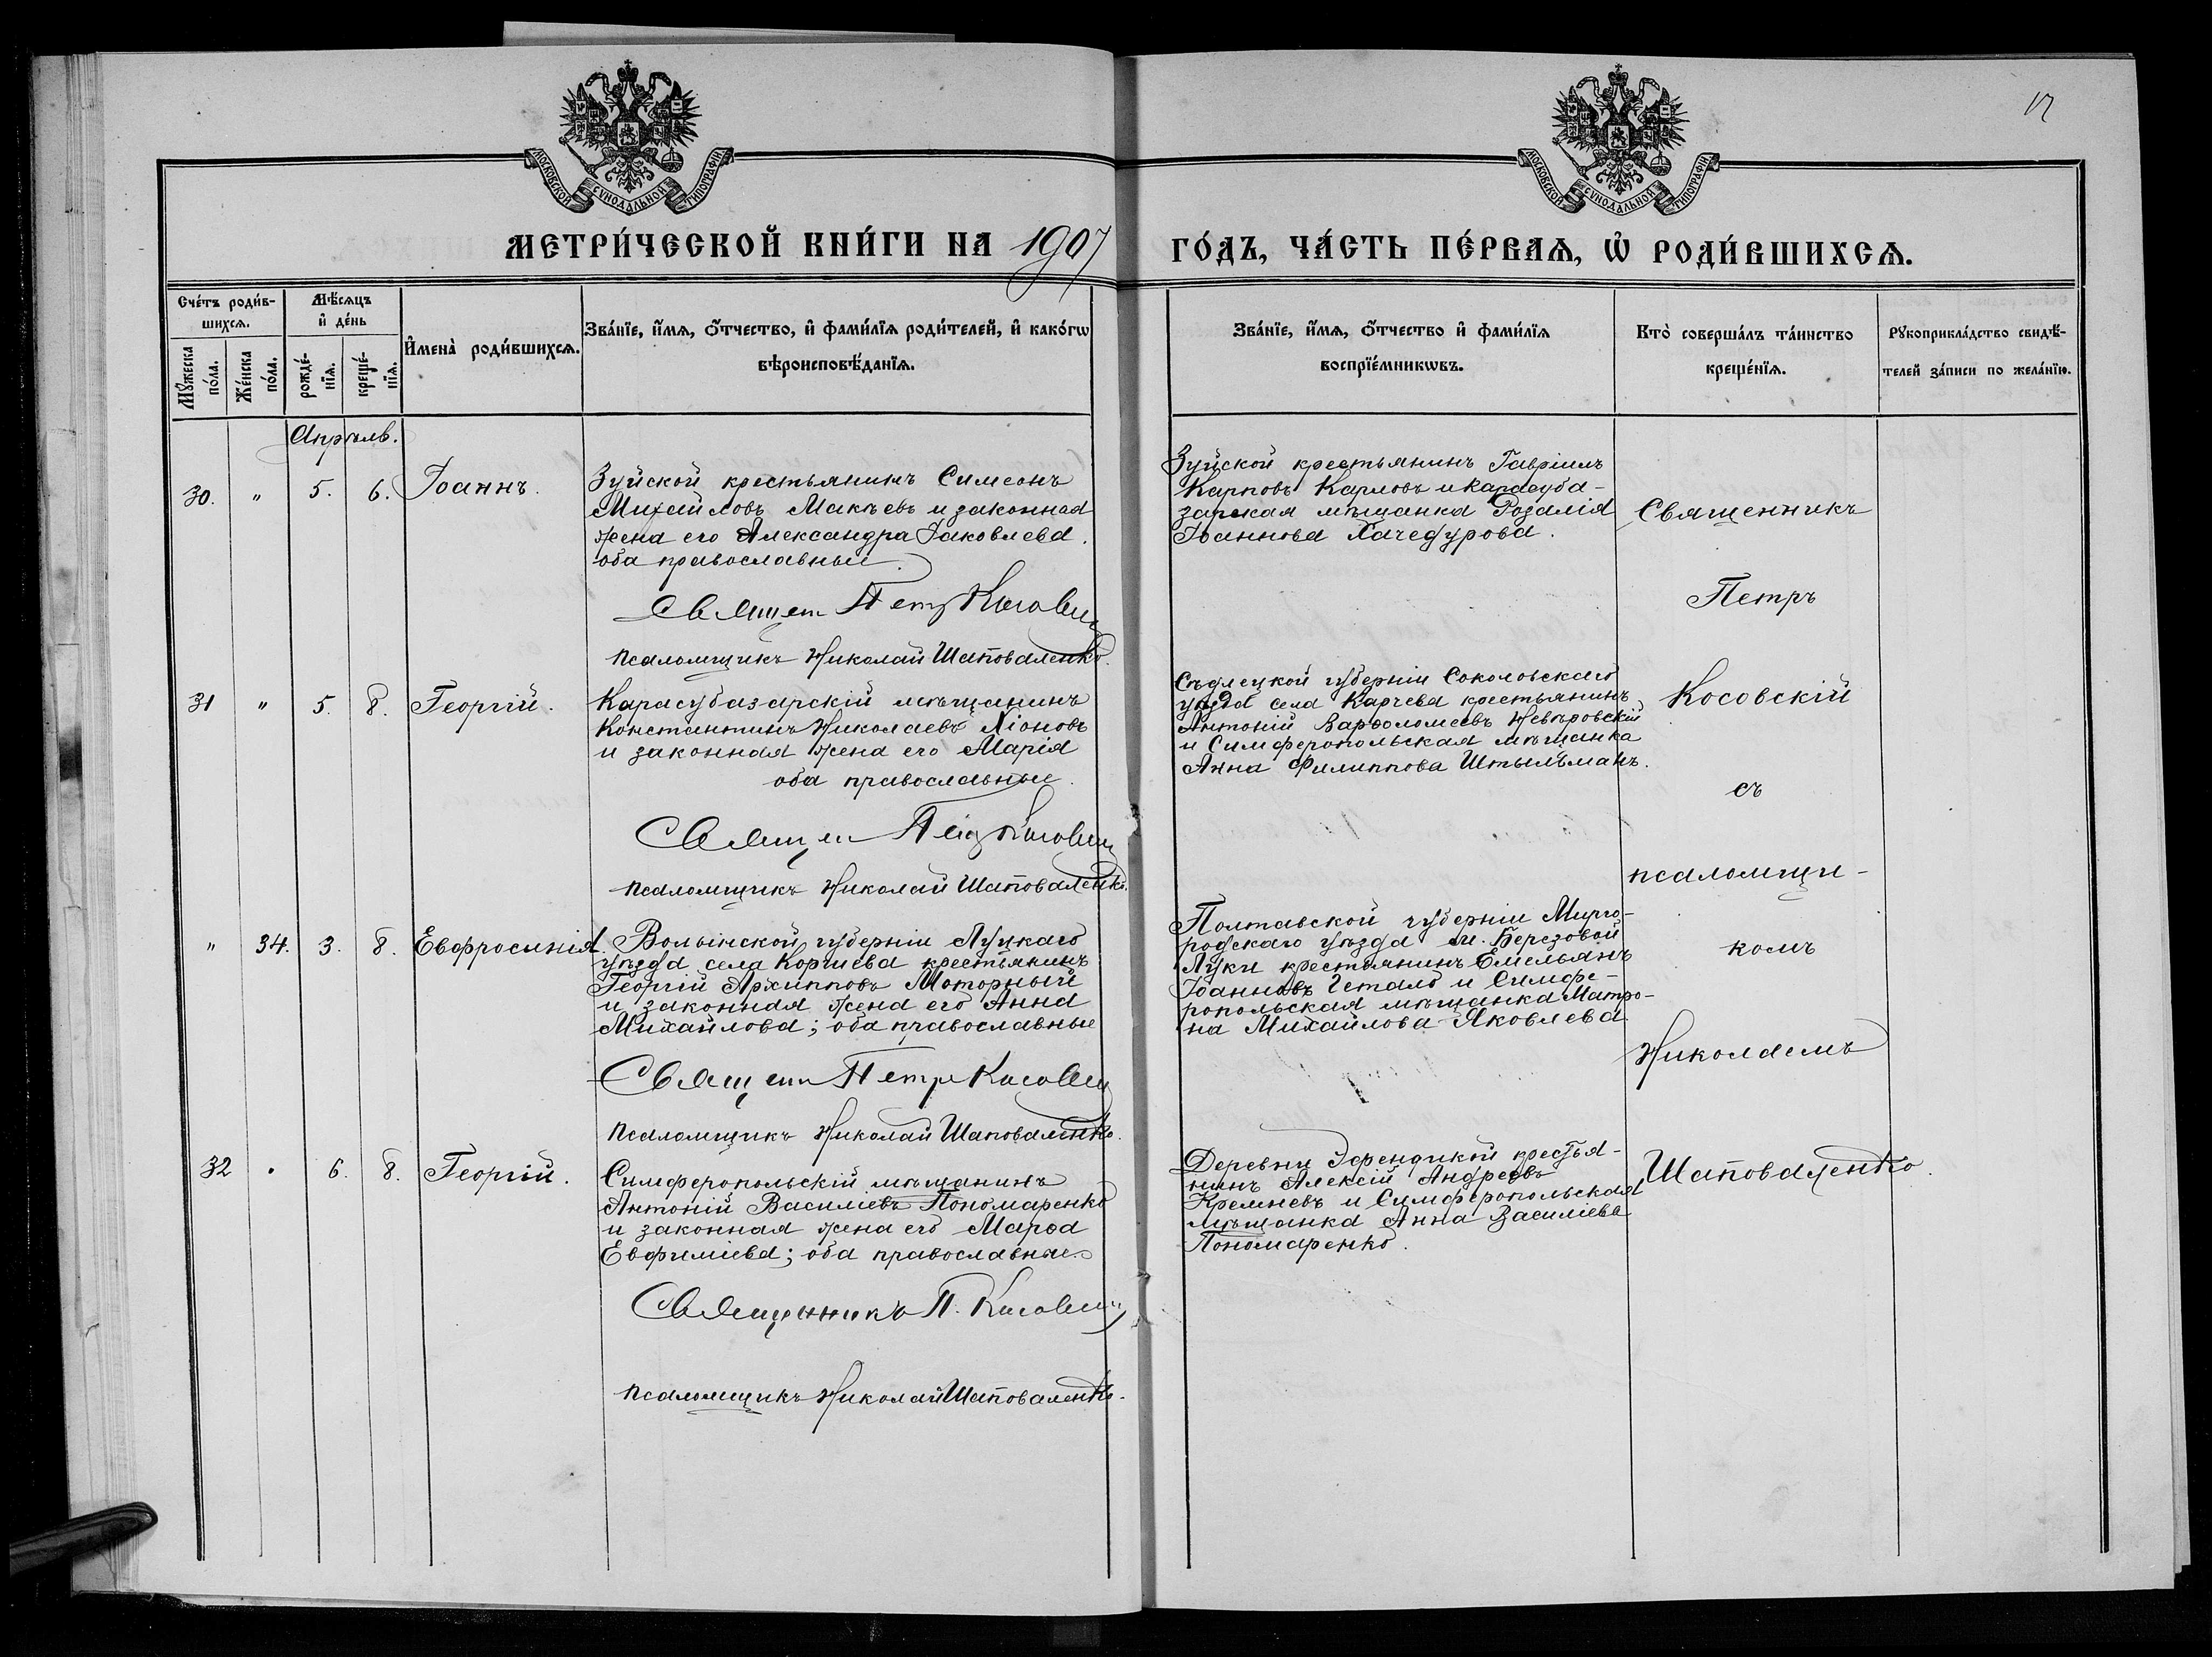 17
МОСКОВСКОЙ СѴНОДАЛЬНОЙ ТИПОГРАФІИ
МОСКОВСКОЙ СѴНОДАЛЬНОЙ ТИПОГРАФІИ
МЕТРИ́ЧЕСКОЙ КНИ́ГИ НА 1907 ГО́ДЪ, ЧА́СТЬ ПЕ́РВАѦ, Ѡ҆ РОДИ́ВШИХСѦ.
Сче́тъ роди́в-
шихсѧ.
Мꙋ́жеска
по́ла.
Же́нска
по́ла.
Мѣ́сѧцъ
и҆ де́нь
рожде́-
нїѧ.
креще́-
нїѧ.
И҆мена̀ роди́вшихсѧ.
Зва́нїе, и҆́мѧ, ѻ҆́тчество, и҆ фами́лїѧ роди́телей, и҆ како́гѡ
вѣроисповѣ́данїѧ.
Зва́нїе, и҆́мѧ, ѻ҆́тчество и҆ фами́лїѧ
воспрїе́мникѡвъ.
Кто̀ соверша́лъ та́инство
креще́нїѧ.
Рꙋкоприкла́дство свидѣ́-
телей за́писи по жела́нїю.
Апрѣль.
30. " 5. 6. Іоаннъ.
Зуйской крестьянинъ Симеонъ
Михайловъ Макѣевъ и законная
жена его Александра Іаковлева.
оба православные.
Священ Петръ Косовскій
псаломщикъ Николай Шаповаленко.
Зуйской крестьянинъ Гавріилъ
Карповъ Карловъ и карасуба-
зарская мѣщанка Розалія
Іоаннова Хачедурова.
31 " 5. 8. Георгій.
Карасубазарскій мѣщанинъ
Константинъ Николаевъ Хіоновъ
и законная жена его Марія
оба православные.
Священ Петръ Косовскій
псаломщикъ Николай Шаповаленко.
Сѣдлецкой губерніи Соколовскаго
уѣзда села Карчева крестьянинъ
Антоній Варѳоломеевъ Невѣровскій
и Симферопольская мѣщанка
Анна Филиппова Штыльманъ.
" 34. 3. 8. Евфросинія
Волынской губерніи Луцкаго
уѣзда села Коршева крестьянинъ
Георгій Архипповъ Моторный
и законная жена его Анна
Михайлова; оба православные
Священ Петръ Косовскій
псаломщикъ Николай Шаповаленко.
Полтавской губерніи Мирго-
родскаго уѣзда м. Березовой
Луки крестьянинъ Емельянъ
Іоанновъ Гетало и Симфе-
ропольская мѣщанка Матро-
на Михайлова Яковлева
32 " 6. 8. Георгій.
Симферопольскій мѣщанинъ
Антоній Василіевъ Пономаренко
и законная жена его Марѳа
Евфиміева; оба православные.
Священникъ П. Косовскій
псаломщикъ Николай Шаповаленко.
Деревни Эфендикой крестья-
нинъ Алексій Андреевъ
Кремневъ и Симферопольская
мѣщанка Анна Василіева
Пономаренко.
Священникъ
Петръ
Косовскій
съ
псаломщи-
комъ
Николаемъ
Шаповаленко.